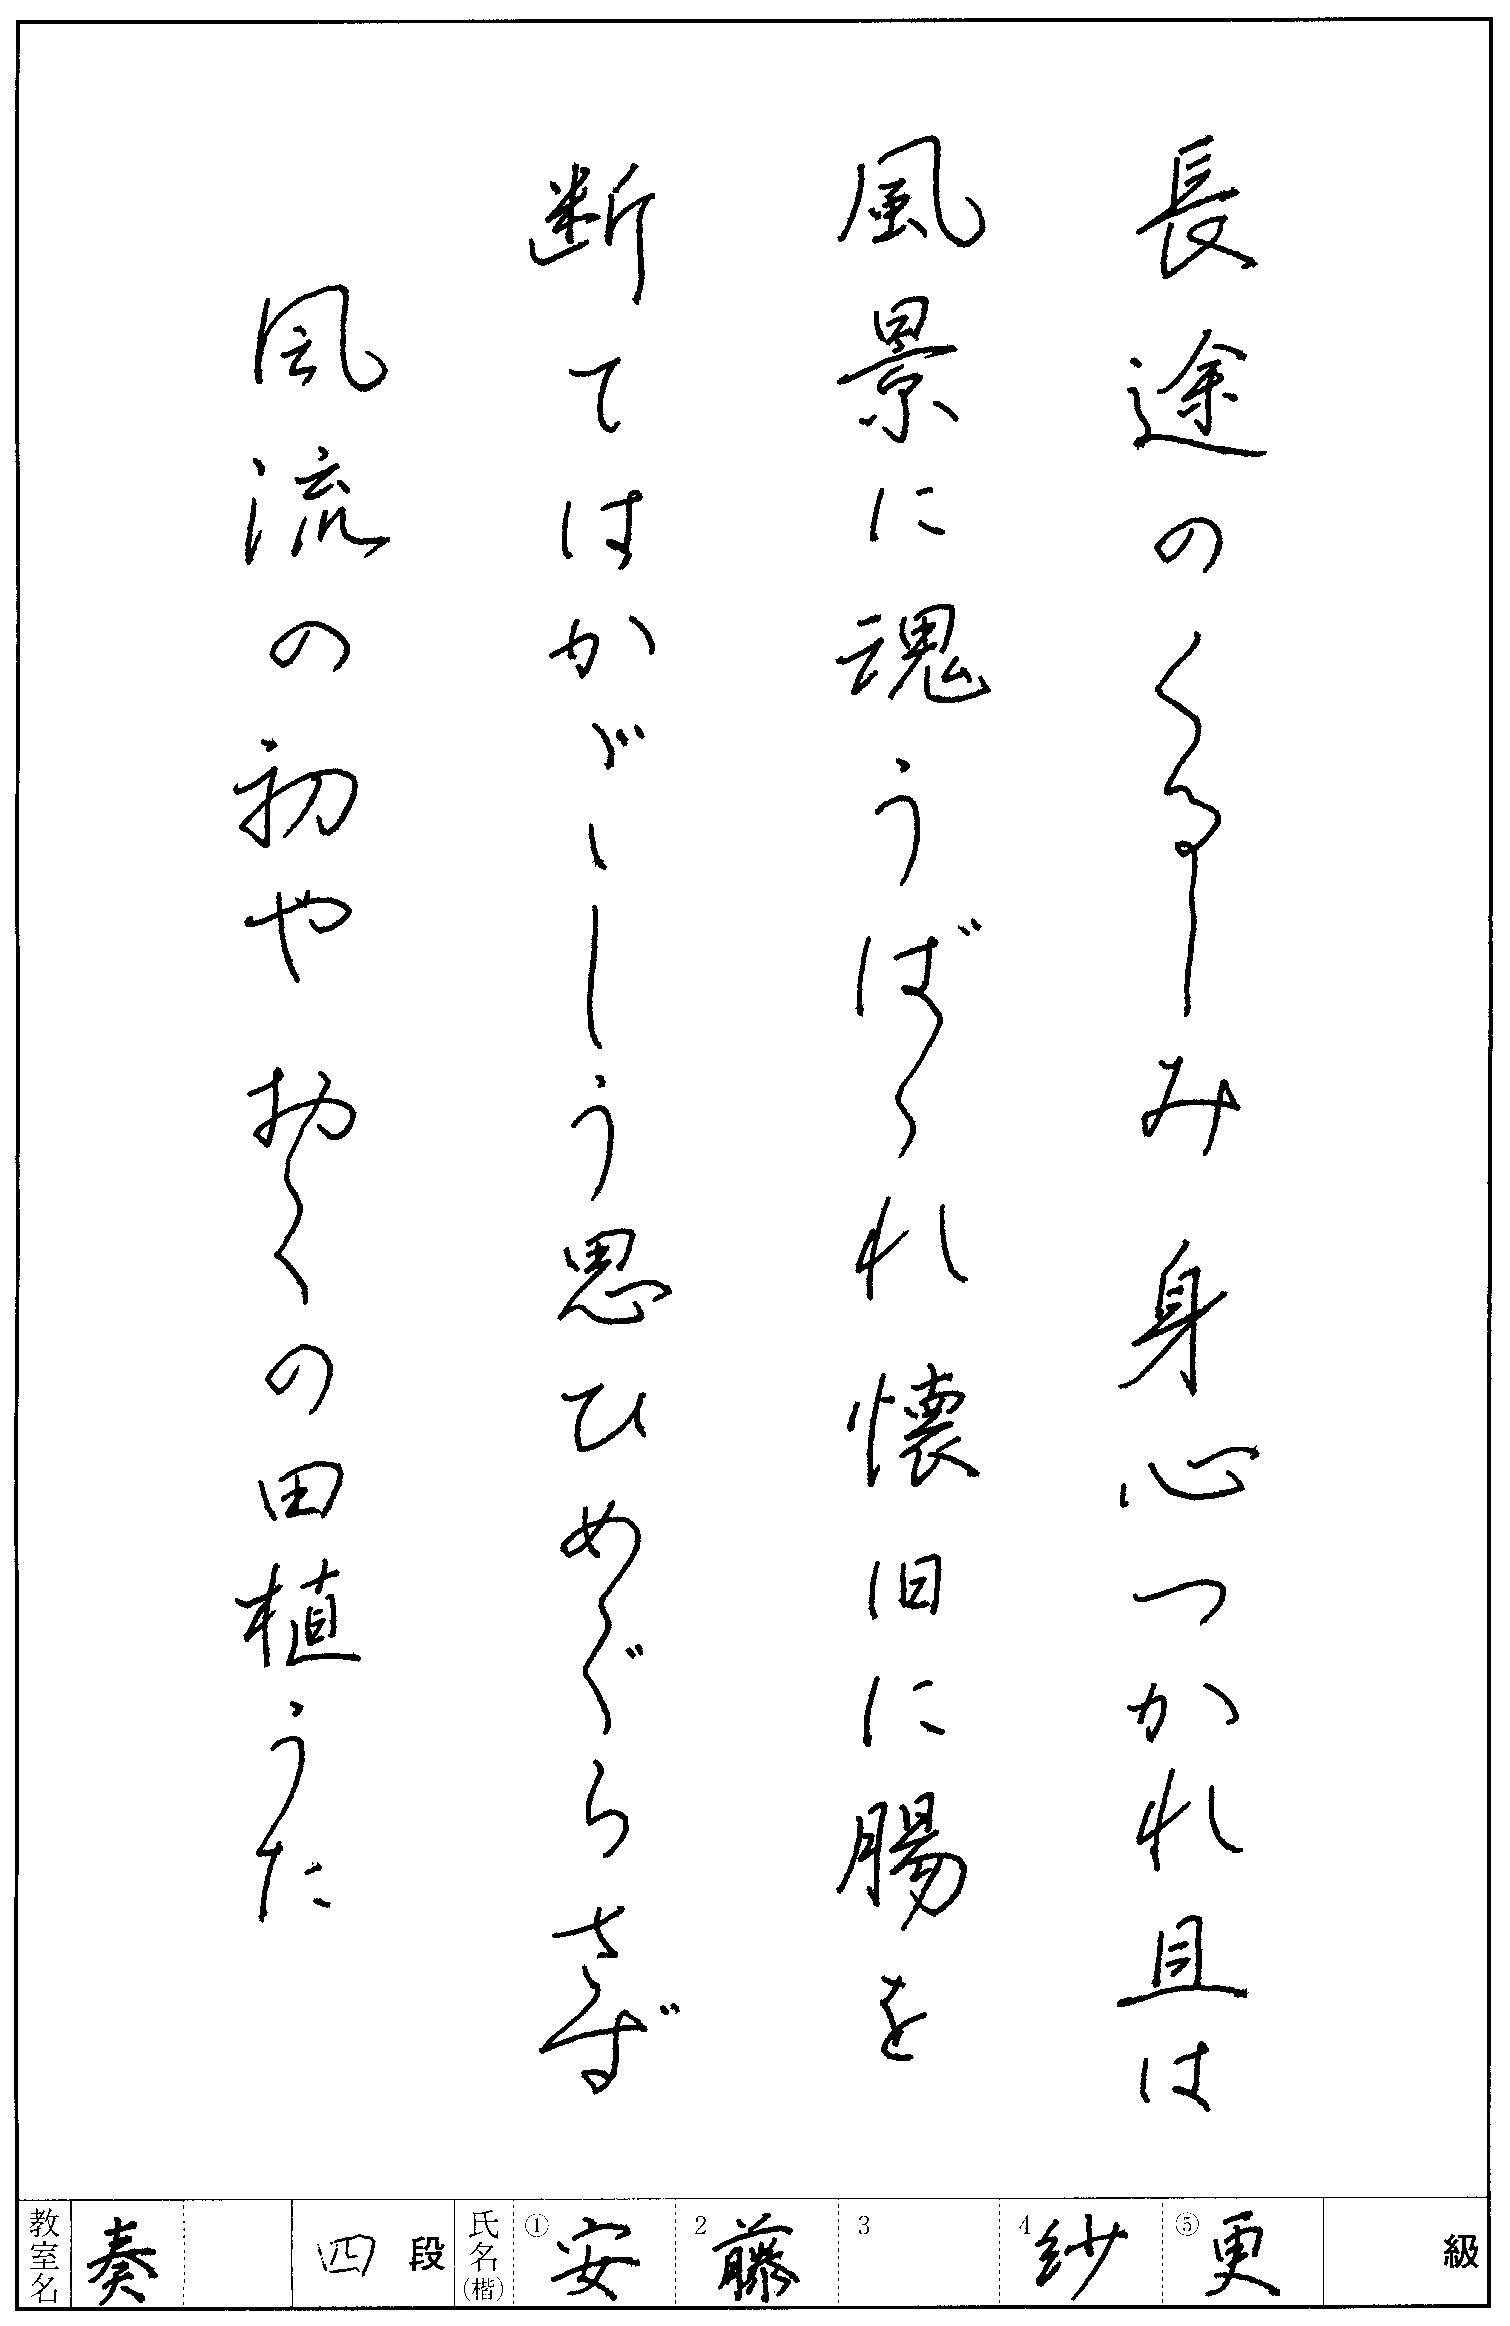 長途のくるしみ身心つかれ且は
風景に魂うばゝれ懐旧に腸を
断てはかゞゝしう思ひめぐらさず
風流の初やおくの田植うた
教室名 奏 四 段 氏名(楷) ① 安 2 藤 3 4 紗 ⑤ 更 級